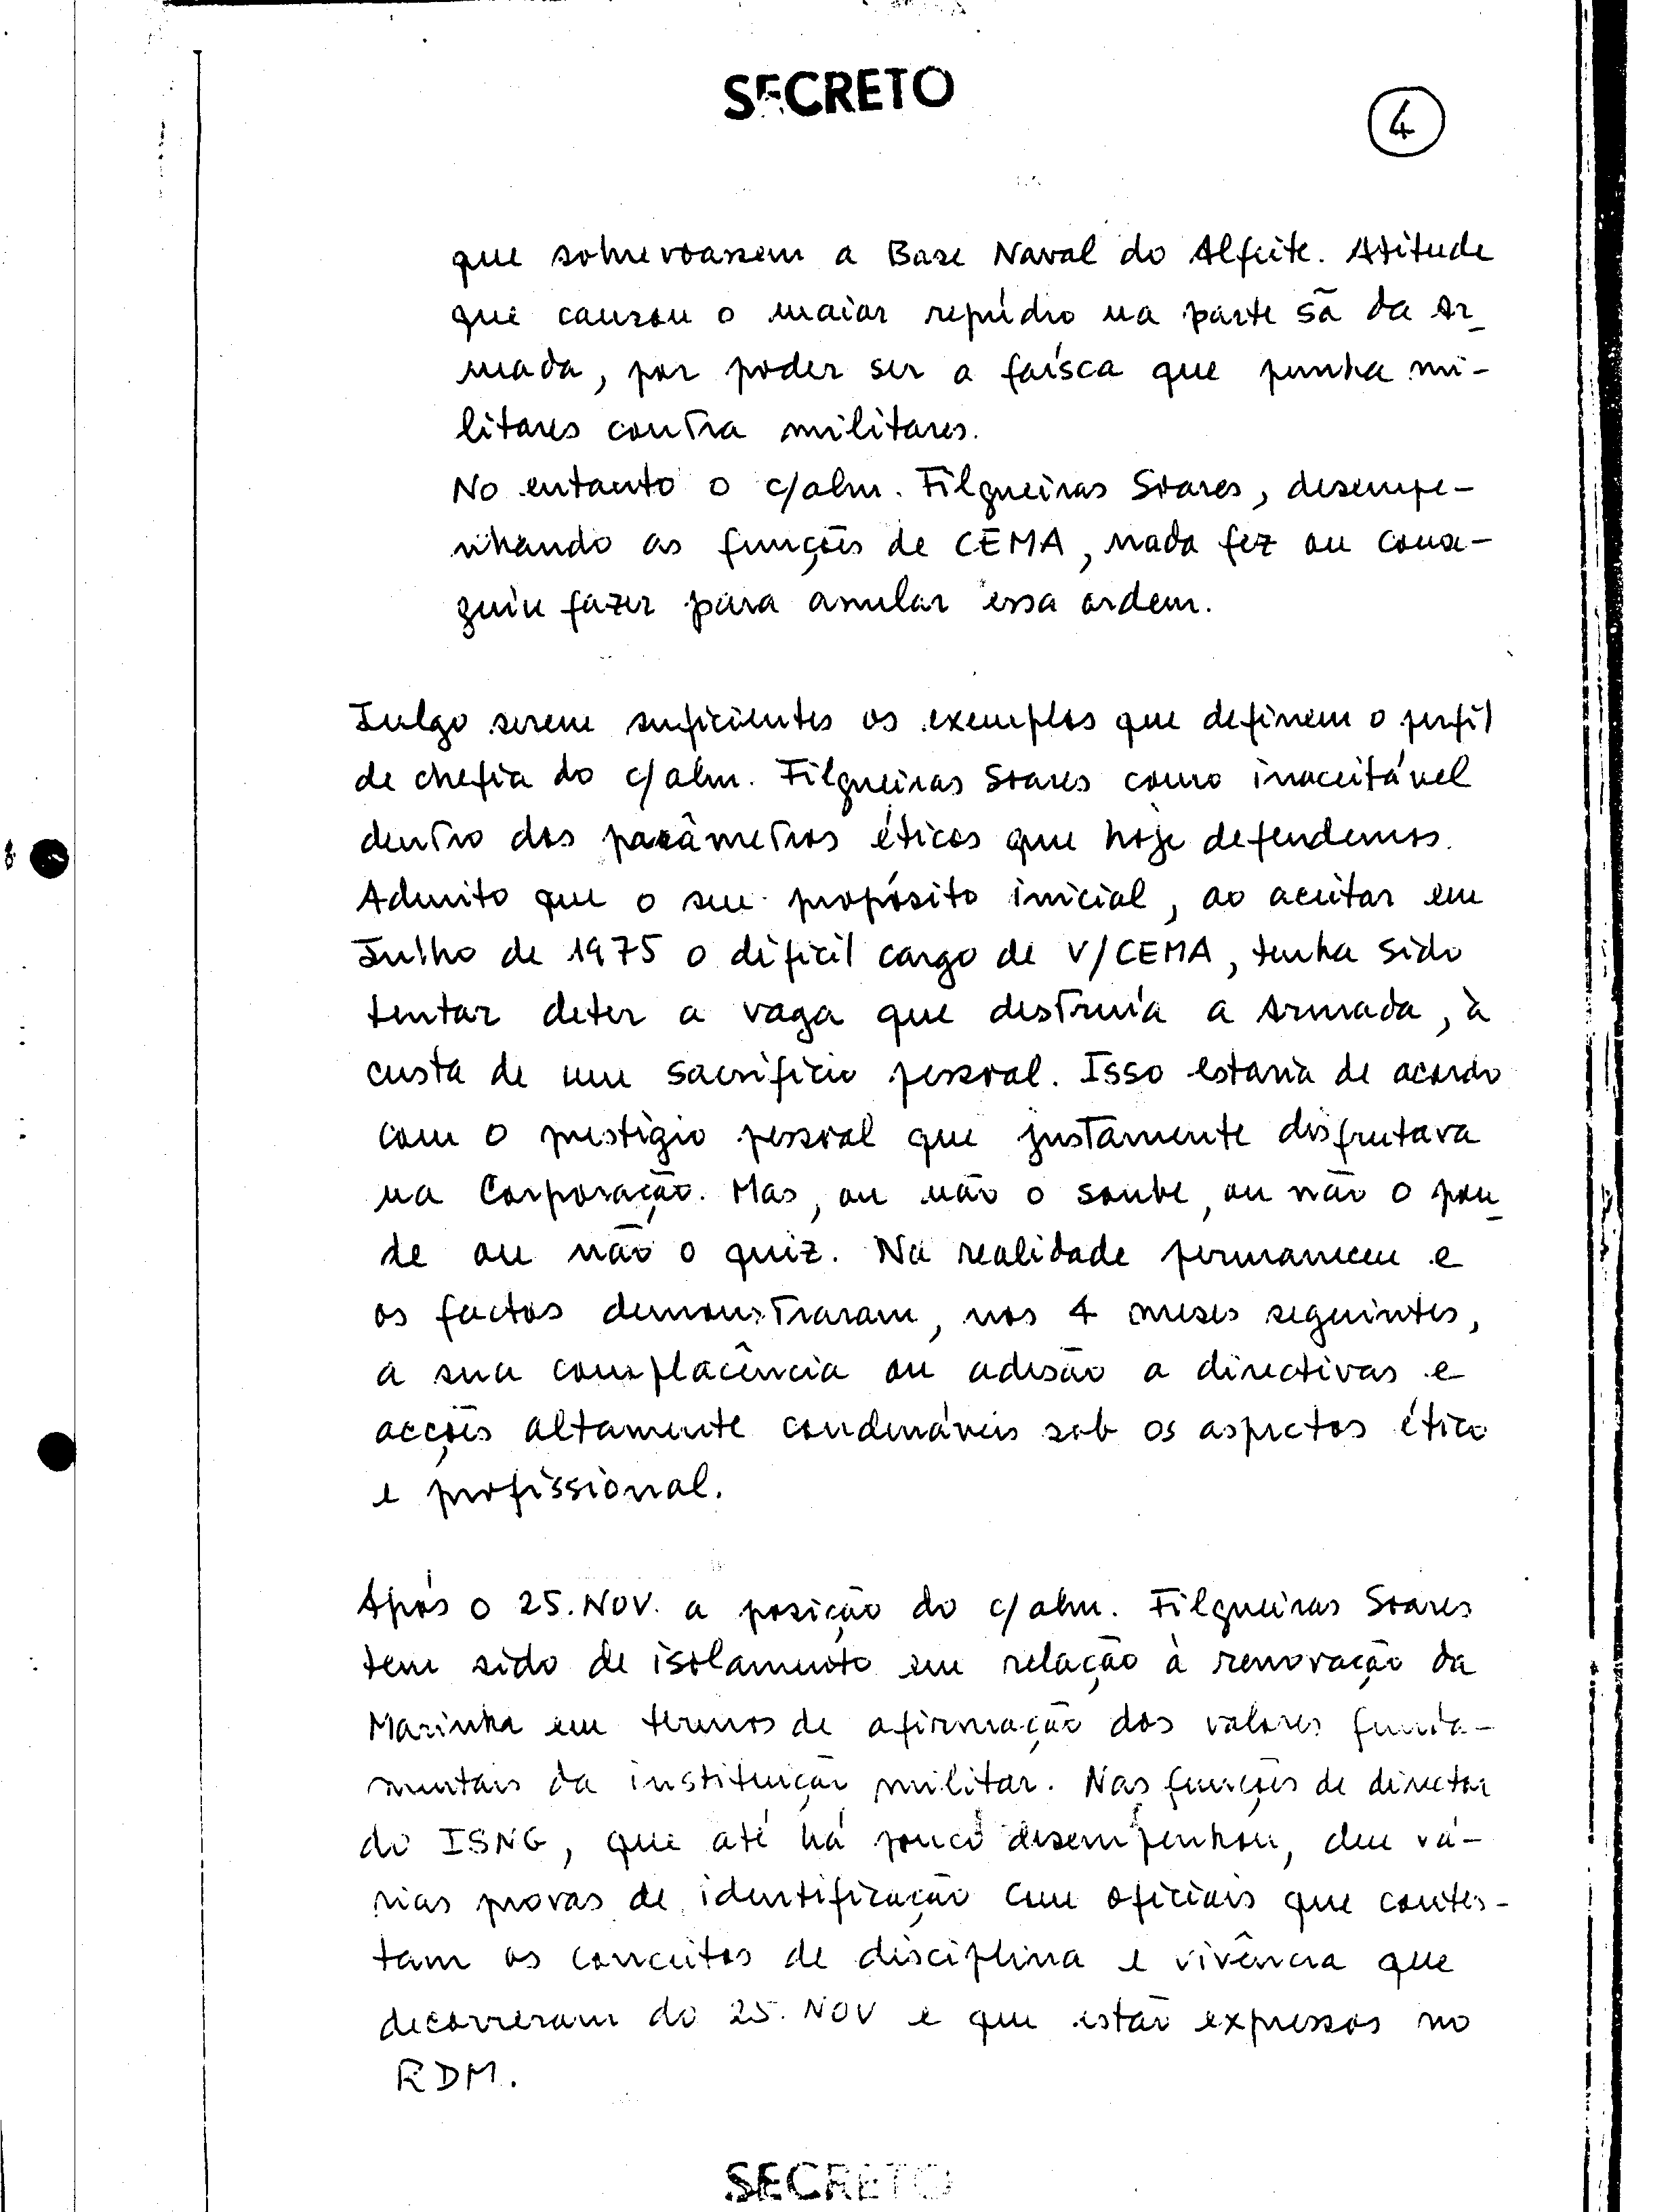 SECRETO
4
que sobrevoassem a Base Naval do Alfeite. Atitude
que causou o maior repúdio na parte sã da Ar_
mada, por poder ser a faísca que punha mi-
litares contra militares.
No entanto o c/alm. Filgueiras Soares, desempe-
nhando as funções de CEMA, nada fez ou conse-
guiu fazer para anular essa ordem.
Julgo serem suficientes os exemplos que definem o perfil
de chefia do c/alm. Filgueiras Soares como inaceitável
dentro dos parâmetros éticos que hoje defendemos.
Admito que o seu propósito inicial, ao aceitar em
Julho de 1975 o difícil cargo de V/CEMA, tenha sido
tentar deter a vaga que destruía a Armada, à
custa de um sacrifício pessoal. Isso estaria de acordo
com o prestígio pessoal que justamente disfrutava
na Corporação. Mas, ou não o soube, ou não o pou_
de ou não o quiz. Na realidade permaneceu e
os factos demonstraram, nos 4 meses seguintes,
a sua complacência ou adesão a directivas e
acções altamente condenáveis sob os aspectos ético
e profissional.
Após o 25.NOV. a posição do c/alm. Filgueiras Soares
tem sido de isolamento em relação à renovação da
Marinha em termos de afirmação dos valores funda-
mentais da instituição militar. Nas funções de director
do ISNG, que até há pouco desempenhou, deu vá-
rias provas de identificação com oficiais que contes-
tam os conceitos de disciplina e vivência que
decorreram do 25. NOV e que estão expressos no
RDM.
SECRETO